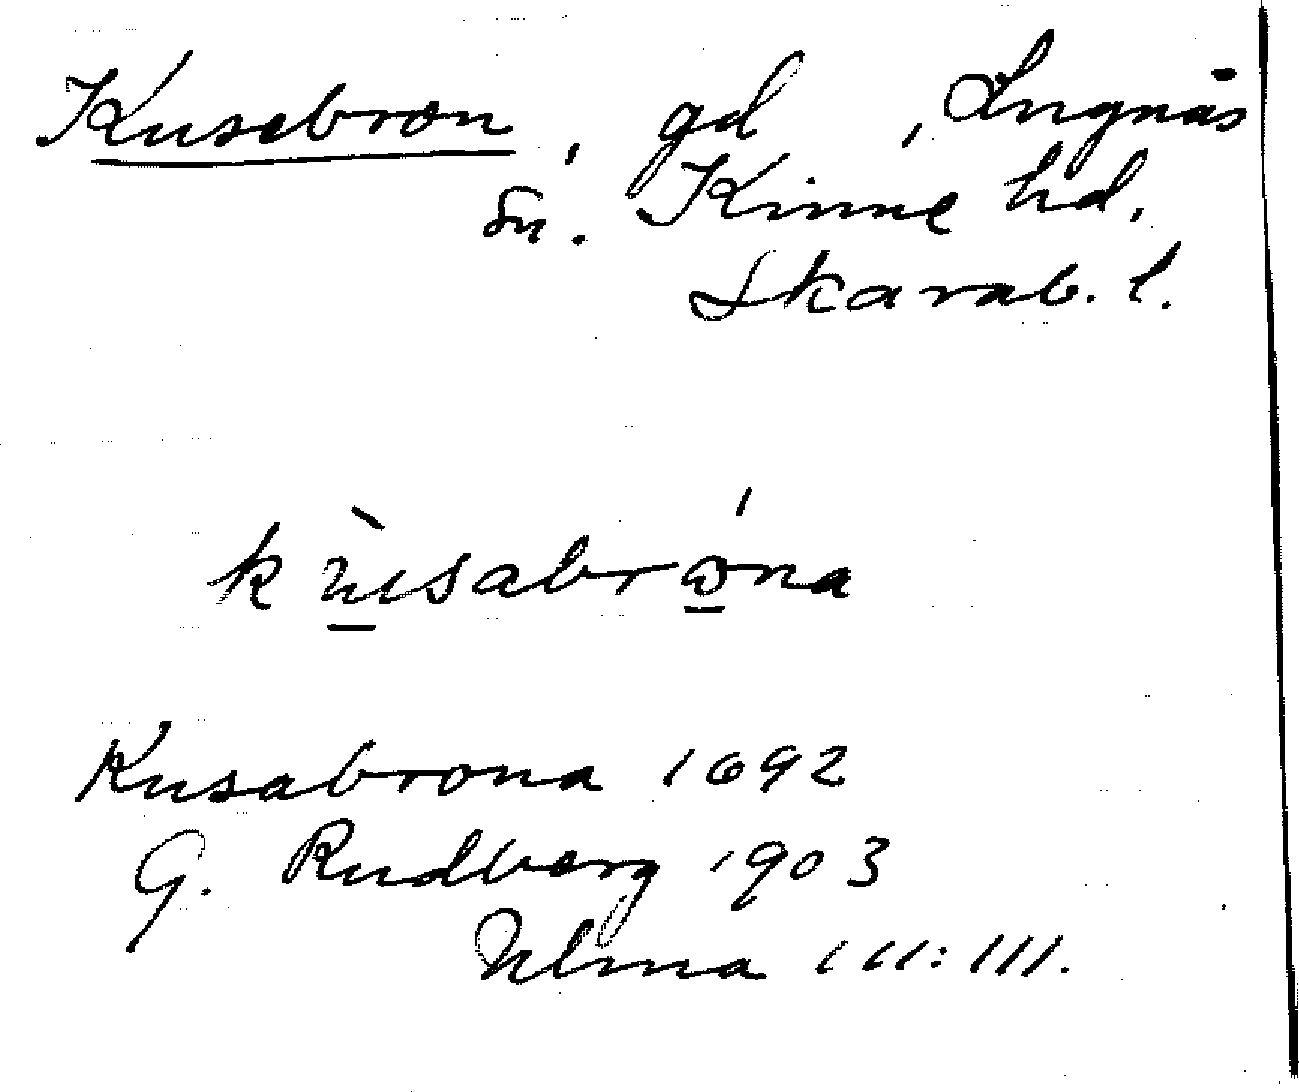 Kusebron, gd, Lugnås
sn. Kinne hd,
Skarab. l.
kùsabróna
Kusabrona 1692
G. Rudberg 1903
Ulma 111:111.